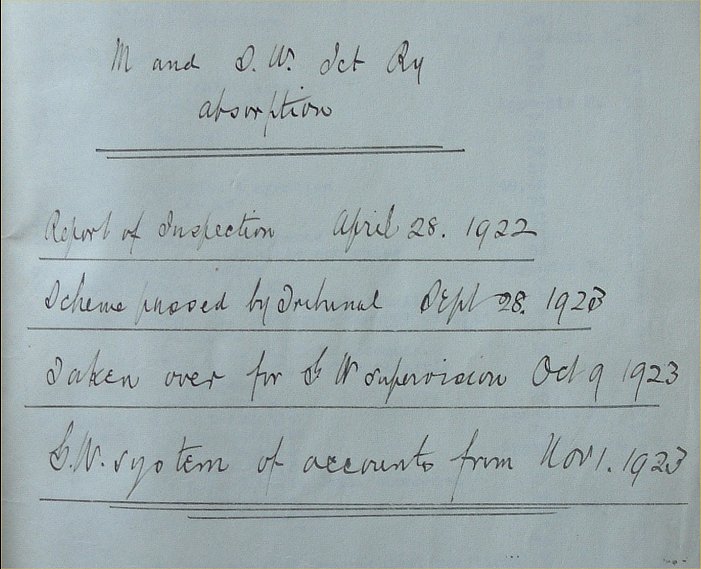 M and S. W. Jct Ry
absorption
Report of Inspection April 28. 1922
Scheme passed by Tribunal Sept 28. 1923
Taken over for G W supervision Oct 9 1923
G.W. system of accounts from Nov 1. 1923